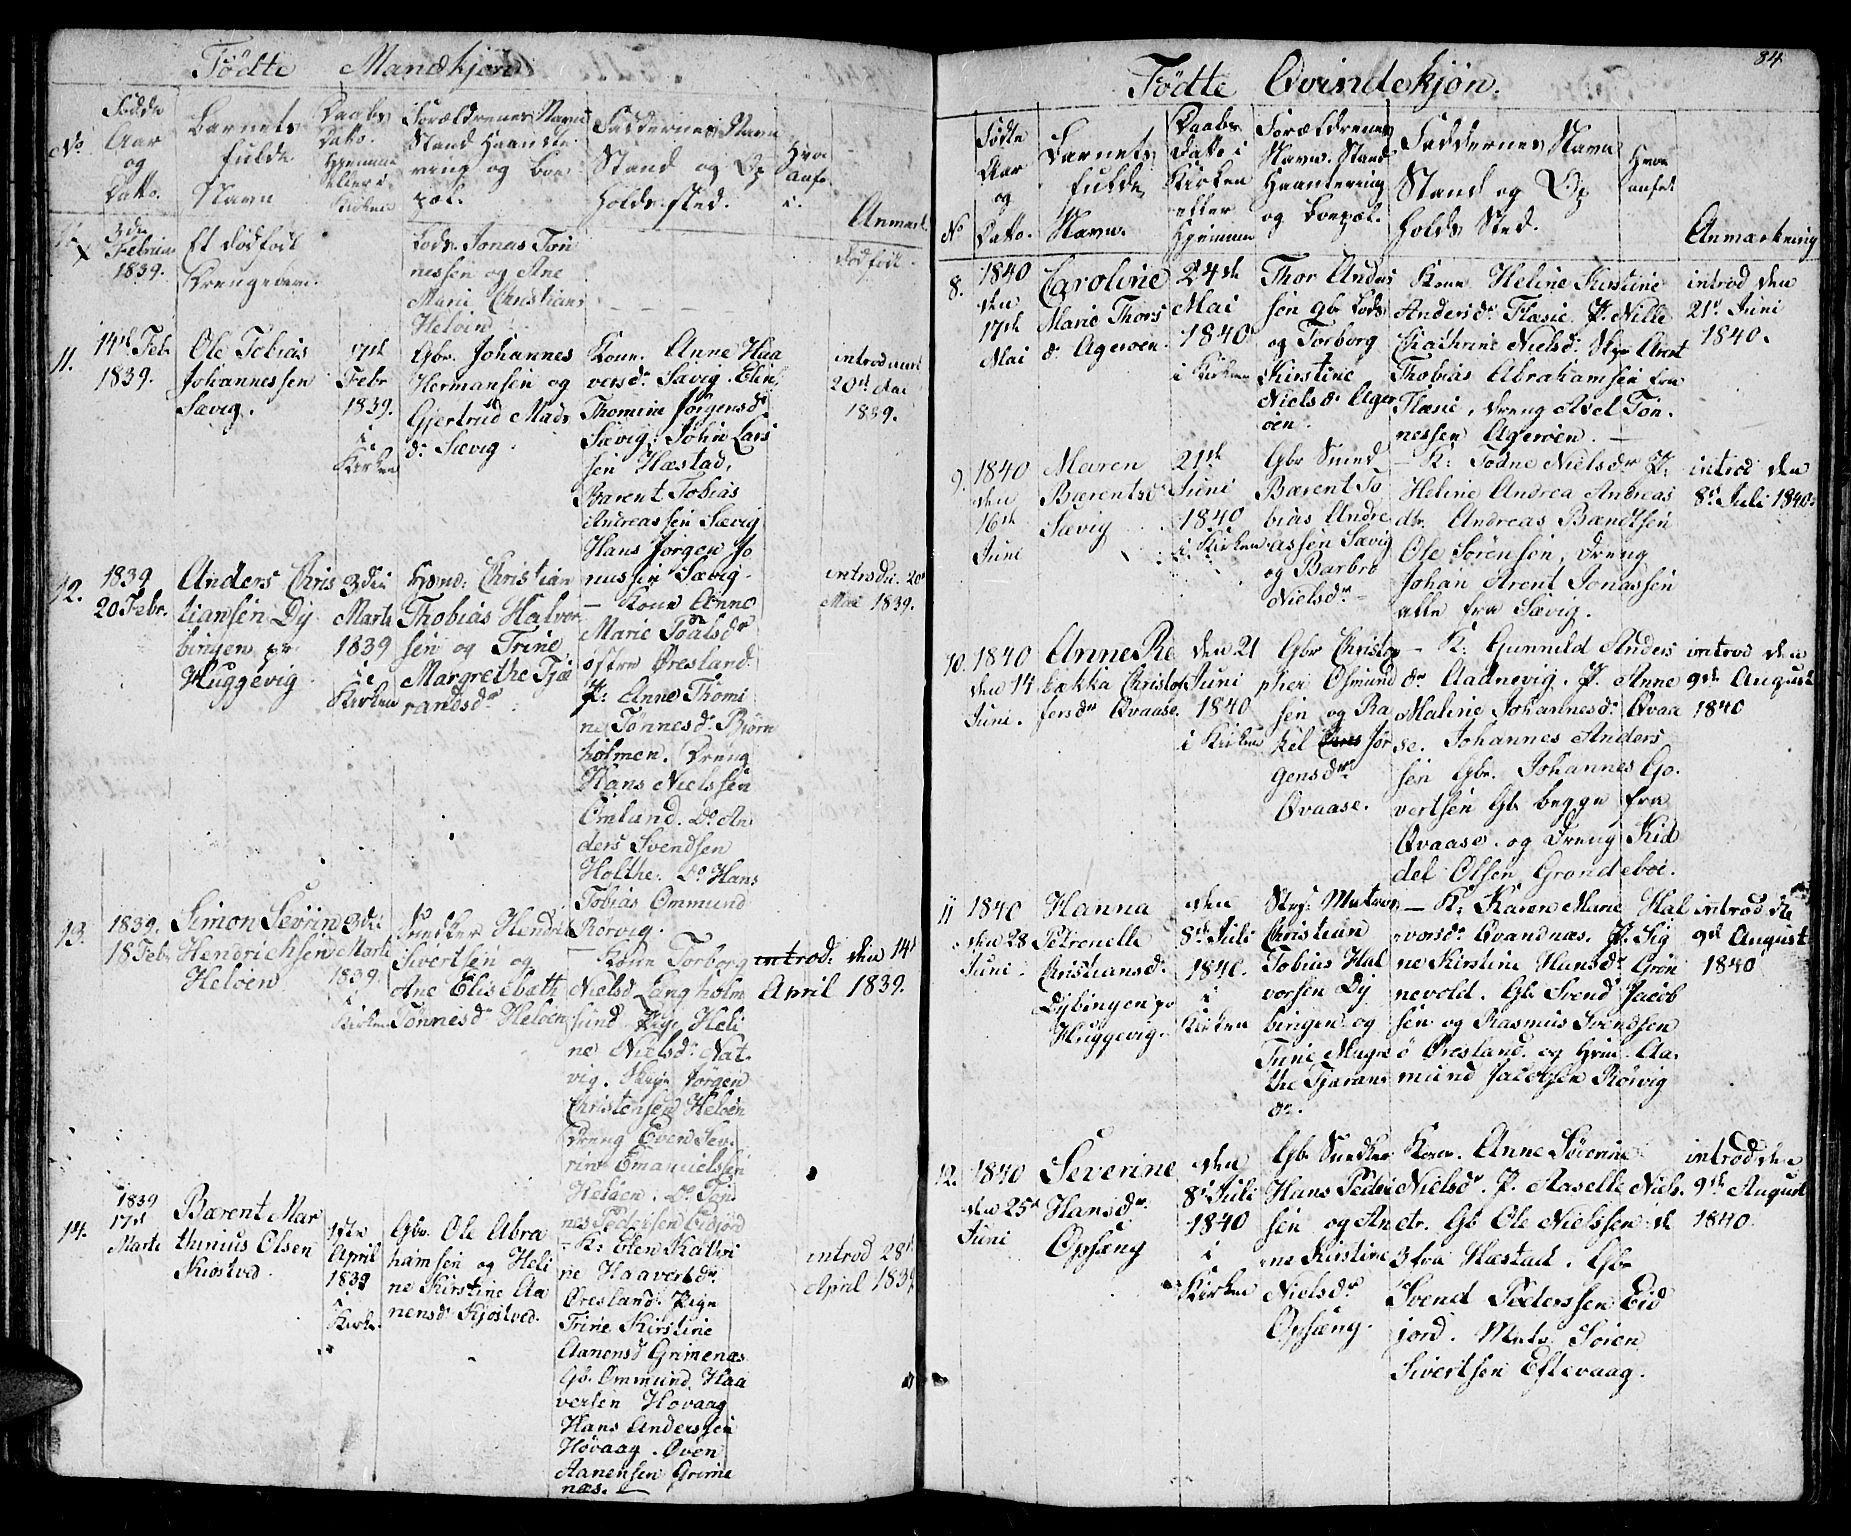 Fødte Mandkjøn
No
Fødde
Aar
og
Datto.
Barnets
fulde
Navn
Daabs
Datto.
Hjemme
eller i
Kirken
Forældrenes Navn
Stand Haandte
ring og boe
pæl.
Faddernes Navn
Stand og Op
holds sted.
Anmærk.
3die
Februar
1839.
Et dødfødt
Drengebarn.
Lods Jonas Tøn
nessen og Ane
Marie Christians
Heløen
Dødfødt.
11.
14de Feb.
1839.
Ole Tobias
Johannessen
Sævig.
17de
Febr
1839.
i
Kirken
Gbr. Johannes
Hermansen og
Gjertrud Mads
dr Sævig.
Kone. Anne Haa
versdr Sævig. Elin
Thomine Jørgensdr
Sævig. John Lars
sen Hæstad,
Barent Tobias
Andreassen Sævig
Hans Jørgen Jo
nussen Sævig.
20de Mai
1839.
12.
1839
20 Febr.
Anders Chris
tiansen Dy
bingen pr
Huggevig
3die
Marts
1839
i
Kirken
Christian
Thobias Halvor
sen og Trine
Margrethe Tjæ
randsdr
– Kone Anne
Marie Poalsdr
østre Øresland.
P: Anne Thomi
ne Tønnesdr Biørn
holmen. Dreng
Hans Nielssen
Omland. Do An
ders Svendsen
Holthe. Do Hans
Tobias Ommund
Rørvig.
introd. 20de
Mai 1839.
13.
1839.
18 Feb.
Simon Sevrin
Hendrichsen
Heløen
3die
Marts
1839.
i
Kirken
Snedker Hendrik
Sivertsen og
Ane Elisebeth
Tønnesdr Heløen
– Kone Torborg
Nielsd Langholm
sund. Pige Heli
ne Nielsdr Nat
vig. Jørgen
Christensen Heløen
Dreng Even Sev
rin Emanuelsen
Heløen. Do Tøn
nes Pedersen Eidjord
introd: den 14de
April 1839.
14.
1839
17de
Marts
Bærent Mar
thinius Olsen
Kjøstved.
1ste
April
1839
i
Kirke.
Gbr. Ole Abra
hamsen og Heli
ne Kirstine Aa
nensdr Kjøstved.
– K: Elen Kathri
ne Haaversdr
Øresland. Pige
Trine Kirstine
Aanensd Grimenæs
Gb. Ommund Haa
versen Hovaag
Hans Anderssen
Høvaag. Oven
Aanensen Grime
næs. –
introd 28de
April 1839
84
Fødte Qvindekjøn.
No
Fødte
Aar
og
Datto.
Barnets
fulde
Navn.
Daabs
Datto i
Kirken
eller
Hjemme
Forældrenes
Navn. Stand
Haantering
og boepæl.
Faddernes Navn
Stand og Op
holds Sted.
Anmærkning
8.
1840
den
17de
Mai
Caroline
Marie Thors
dr Agerøen.
24de
Mai
1840
i Kirken
Thor Anders
sen gbr Lods
og Torborg
Kirstine
Nielsdr Ager
øen.
Kone Heline Kirstine
Andersdr Flæsie. P. Nille
Chathrine Nielsdr.
Thobias Abrahamsen fra
Flæsie, dreng Axel Tøn
nessen Agerøen. –
introd den
21de Juni
1840.
9.
1840
den
16de
Juni
Maren
Bærentsdr
Sævig
21de
Juni
1840
i Kirken
Gbr Smed
Bærent To
bias Andre
assen Sævig
og Barbro
Nielsdr
– K: Todne Nielsdr P:
Heline Andrea Andreas
dtr. Andreas Bændtsen
Ole Sørensen, dreng
Johan Arent Jonassen
alle fra Sævig.
introd den
8de Juli 1840.
10.
1840
den 14
Juni.
Anne Re
bækka Christof
fersdr Qvaase.
den 21
Juni
1840
i Kirken
Gbr Christop
pher Osmund
sen og Ra
kel Jør
gensdr
Qvaase.
– K: Gunnild Anders
dr Aadnevig. P. Anne
Maline Johannesdr Qvaa
se. Johannes Anders
sen Gbr. Johannes Go.
vertsen Gb begge fra
Qvaase. og Dreng Kid
del Olsen Grandeboe.
introd den
9de August
1840
11
1840
den 28
Juni.
Hanna
Petronelle
Christiansdr
Dybingen pr
Huggevig.
den
8de Juli
1840.
i
Kirken
Matros
Christian
Tobias Hal
vorsen Dy
bingen og
Trine Magre
the Tjæran
dr.
– K: Karen Marie Hal
vorsdr Qvandnæs. P. Sig
ne Kirstine Hansdr Grøn
nevold. Gb Svend Jacob
sen og Rasmus Svendsen
ø Øresland. og Aa.
mund Jacobsen Rörvig
introd die
9de August
1840
12.
1840
den 25de
Juni
Severine
Hansdr
Opsæng
den
8de Juli
1840
i
Kirken
Gb Snedker
Hans Peder
sen og An
ne Kirstine
Nielsdr
Opsæng.
Kone. Anne Sörine
Nielsdr. P. Aaselle Niels.
dtr. Gb Ole Nielssen. de
3 fra Hæstad. Gbr
Svend Pederssen Eid
jord. Matr. Sören
Sivertsen Eftevaag.
introd den
9de August
1840.